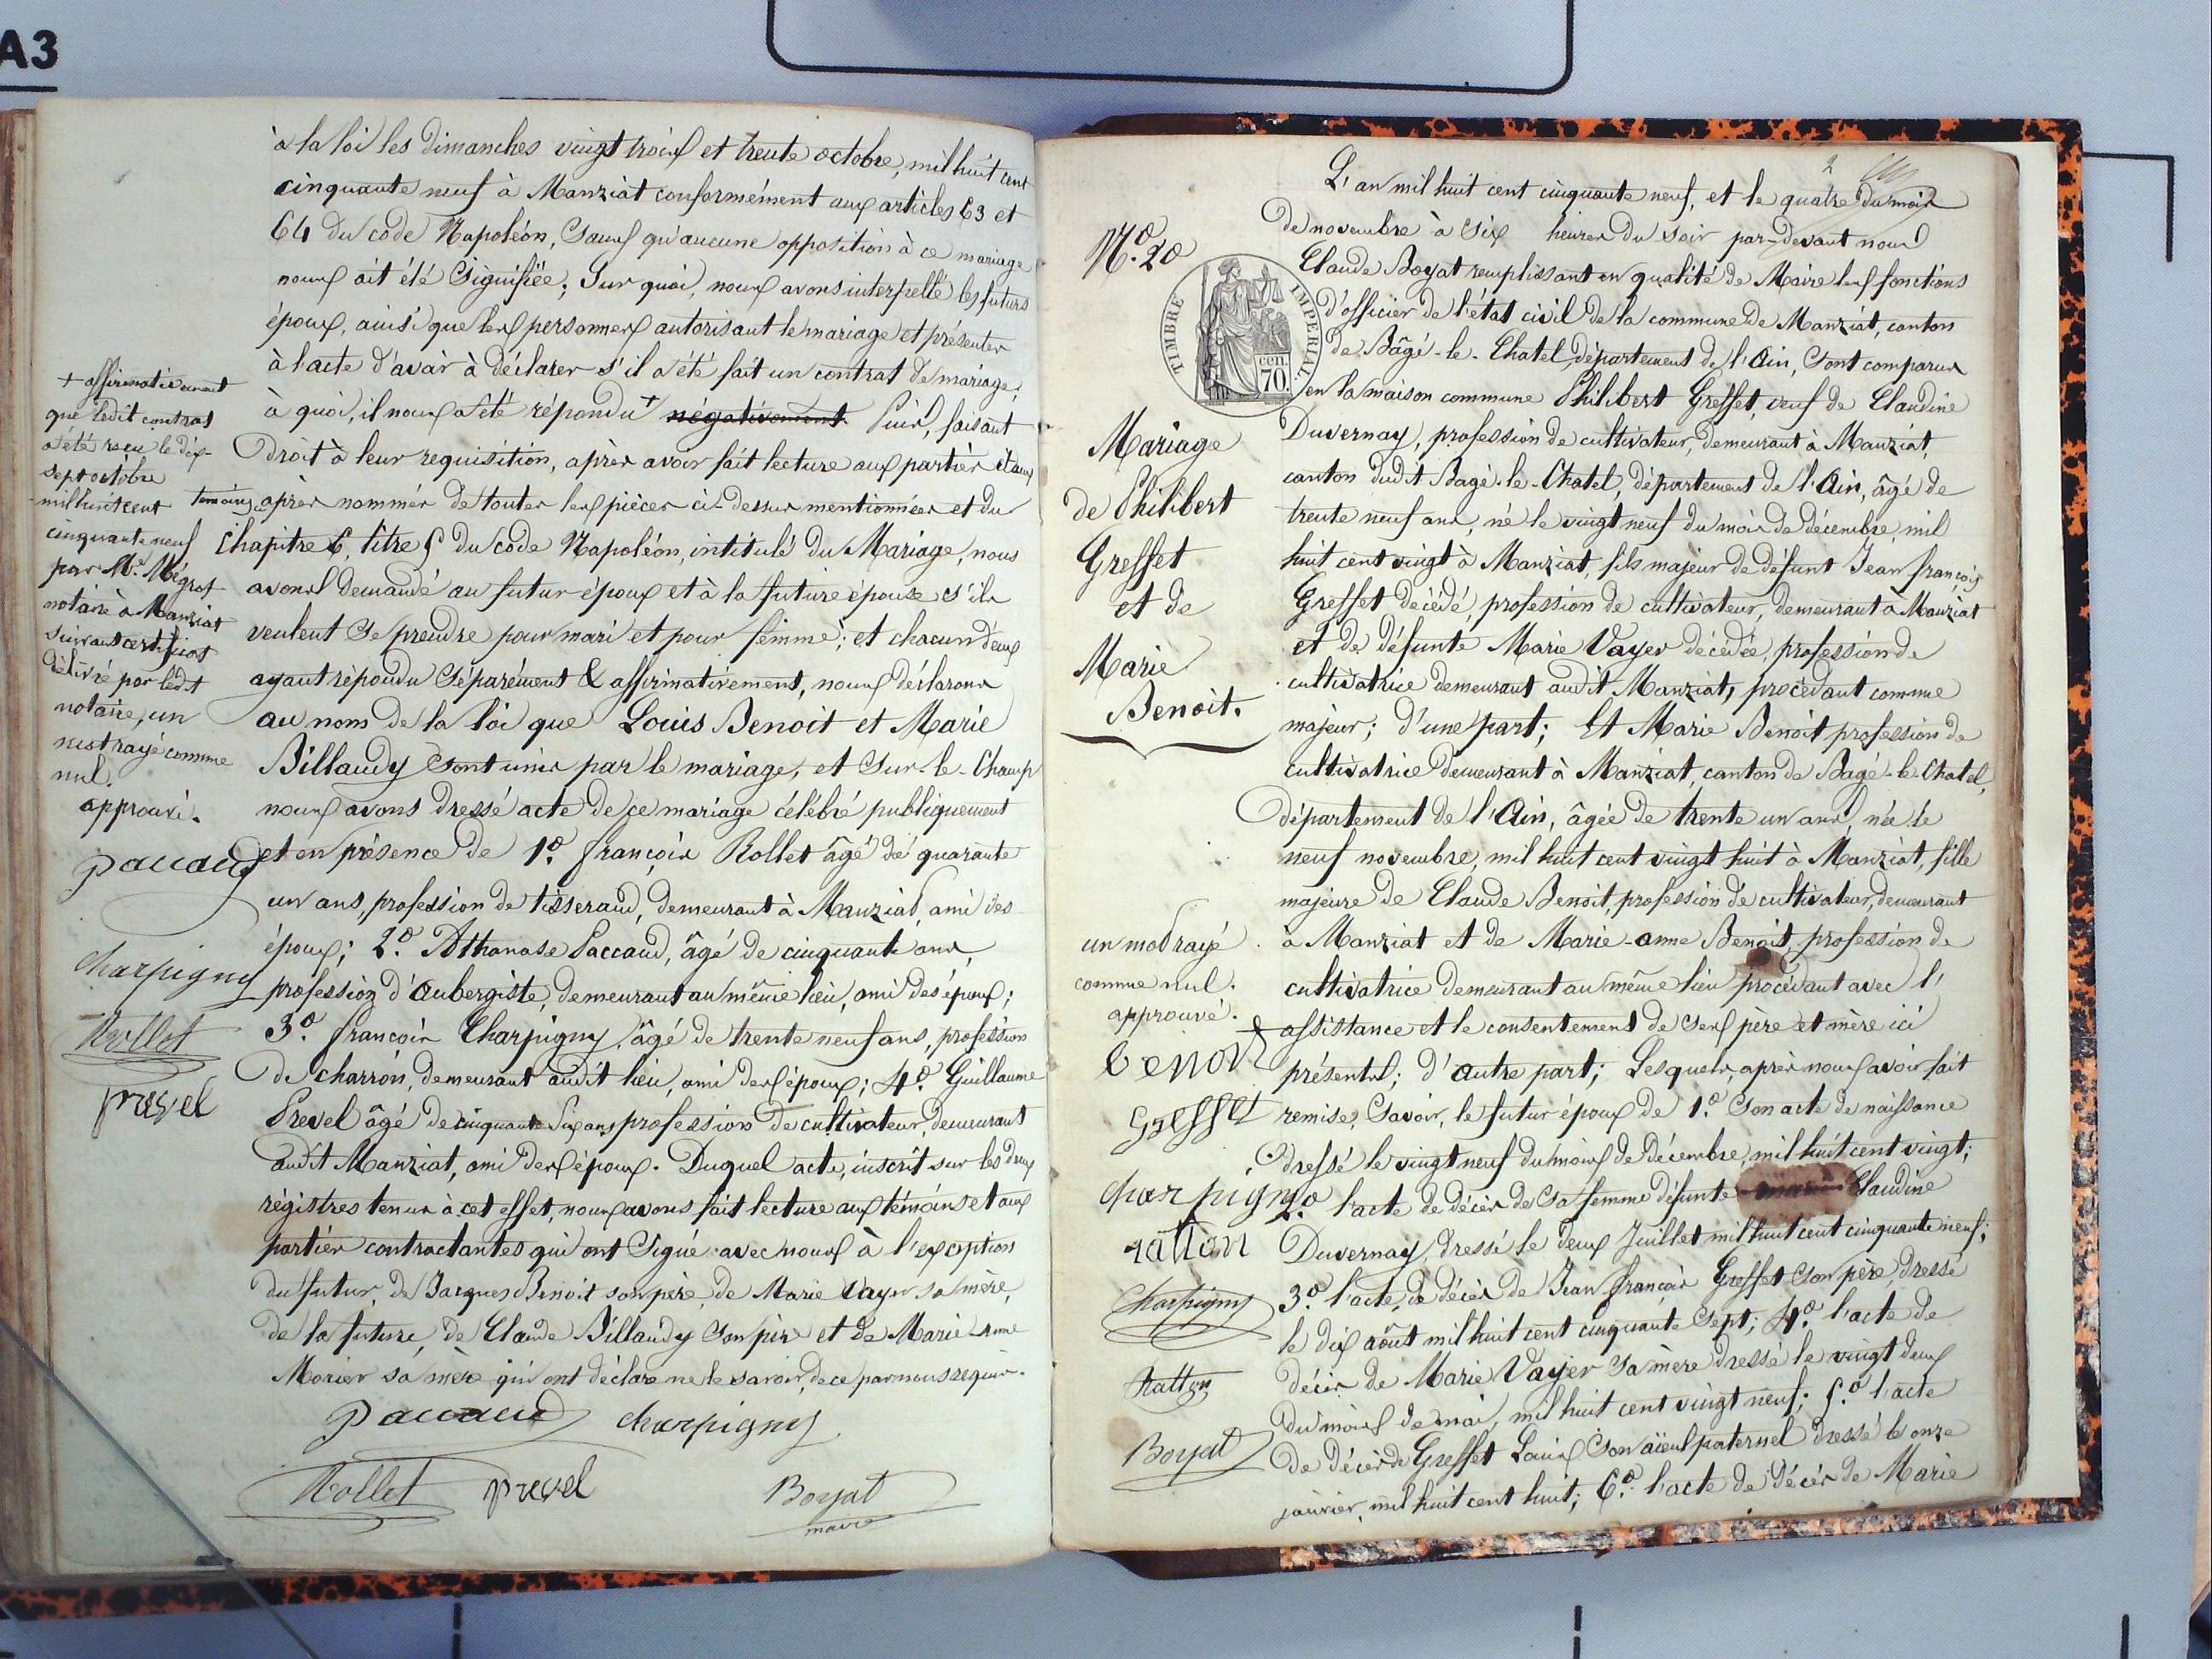 A3
à la loi les dimanches vingt trois et trente octobre, mil huit cent
cinquante neuf à Manziat conformément aux articles 63 et
64 du code Napoléon, sans qu'aucune opposition à ce mariage
nous ait été signifiée; Sur quoi, nous avons interpellé les futurs
époux, ainsi que les personnes autorisant le mariage et présentes
à l'acte d'avoir à déclarer s'il a été fait un contrat de mariage,
à quoi, il nous a été répondu + négativement Puis, faisant
droit à leur requisition, après avoir fait lecture aux parties et aux
témoins après nommés de toutes les pièces ci-dessus mentionnées et du
Chapitre 6, titre 5 du code Napoléon, intitulé du Mariage, nous
avons demandé au futur époux et à la future épouse s'ils
veulent se prendre pour mari et pour femme; et chacun d'eux
ayant répondu séparément & affirmativement, nous déclarons
au nom de la loi que Louis Benoit et Marie
Billaudy sont unis par le mariage, et sur-le-Champ
nous avons dressé acte de ce mariage célébré publiquement
et en présence de 1.º françois Rollet âgé de quarante
un ans, profession de tisserand, demeurant à Manziat, ami des
époux; 2.º Athanase Paccaud, âgé de cinquante ans,
profession d'Aubergiste, demeurant au même lieu, ami des époux;
3.º françois Charpigny, âgé de trente neuf ans, profession
de charron, demeurant audit lieu, ami des époux; 4.º Guillaume
Prevel âgé de cinquante six ans profession de cultivateur, demeurant
audit Manziat, ami des époux. Duquel acte, inscrit sur les deux
régistres tenus à cet effet, nous avons fait lecture aux témoins et aux
parties contractantes qui ont signé avec nous à l'exception
du futur, de Jacques Benoit son père, de Marie Vayer sa mère,
de la future, de Claude Billaudy son père et de Marie-Anne
Morier sa mère qui ont déclaré ne le savoir, de ce par nous requis.
paccaud charpigny
Rollet prevel Boyat
maire
+ affirmativement
que ledit contrat
a été reçu le dix-
sept octobre
mil huit cent
cinquante neuf
par Me. Mégrot
notaire à Manziat
suivant certificat
délivré par ledit
notaire, un
mot rayé comme
nul.
approuvé.
paccaud
charpigny
Rollet
prevel
2
L'an mil huit cent cinquante neuf, et le quatre du mois
de novembre à six heures du soir par-devant nous
Claude Boyat remplissant en qualité de Maire les fonctions
d'officier de l'état civil de la commune de Manziat, canton
de Bâgé-le-Chatel, département de l'Ain, sont comparus
en la maison commune Philibert Greffet, veuf de Claudine
Duvernay, profession de cultivateur, demeurant à Manziat,
canton dudit Bagé-le-Chatel, département de l'Ain, âgé de
trente neuf ans, né le vingt neuf du mois de décembre, mil
huit cent vingt à Manziat, fils majeur de défunt Jean françois
Greffet décédé, profession de cultivateur, demeurant à Manziat
et de défunte Marie Vayer décédée, profession de
cultivatrice demeurant audit Manziat, procédant comme
majeur; d'une part; Et Marie Benoit profession de
cultivatrice demeurant à Manziat, canton de Bagé-le-Chatel,
département de l'Ain, âgée de trente un ans, née le
neuf novembre, mil huit cent vingt huit à Manziat, fille
majeure de Claude Benoit, profession de cultivateur, demeurant
à Manziat et de Marie-anne Benoit, profession de
cultivatrice demeurant au même lieu procédant avec l'
assistance et le consentement de ses père et mère ici
présents; d'autre part; Lesquels, après nous avoir fait
remise, Savoir, le futur époux de 1.º Son acte de naissance
dressé le vingt neuf du mois de décembre, mil huit cent vingt;
2.º l'acte de décès de sa femme défunte Claudine
Duvernay, dressé le deux Juillet mil huit cent cinquante neuf;
3.º l'acte de décès de Jean françois Greffet son père, dressé
le dix août mil huit cent cinquante sept; 4.º l'acte de
décès de Marie Vayer sa mère dressé le vingt deux
du mois de mai, mil huit cent vingt neuf; 5.º l'acte
de décès de Greffet Louis son aïeul paternel dressé le onze
janvier, mil huit cent huit; 6.º l'acte de décès de Marie
N.º 20
TIMBRE IMPERIAL
cen. 70.
Mariage
de Philibert
Greffet
et de
Marie
Benoit.
un mot rayé
comme nul.
approuvé.
benoit
Greffet
charpigny
ratton
Charpigny
Ratton
Boyat